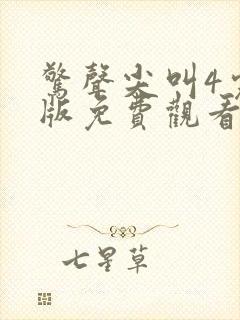 驚聲尖叫4
版免費觀看
七星草